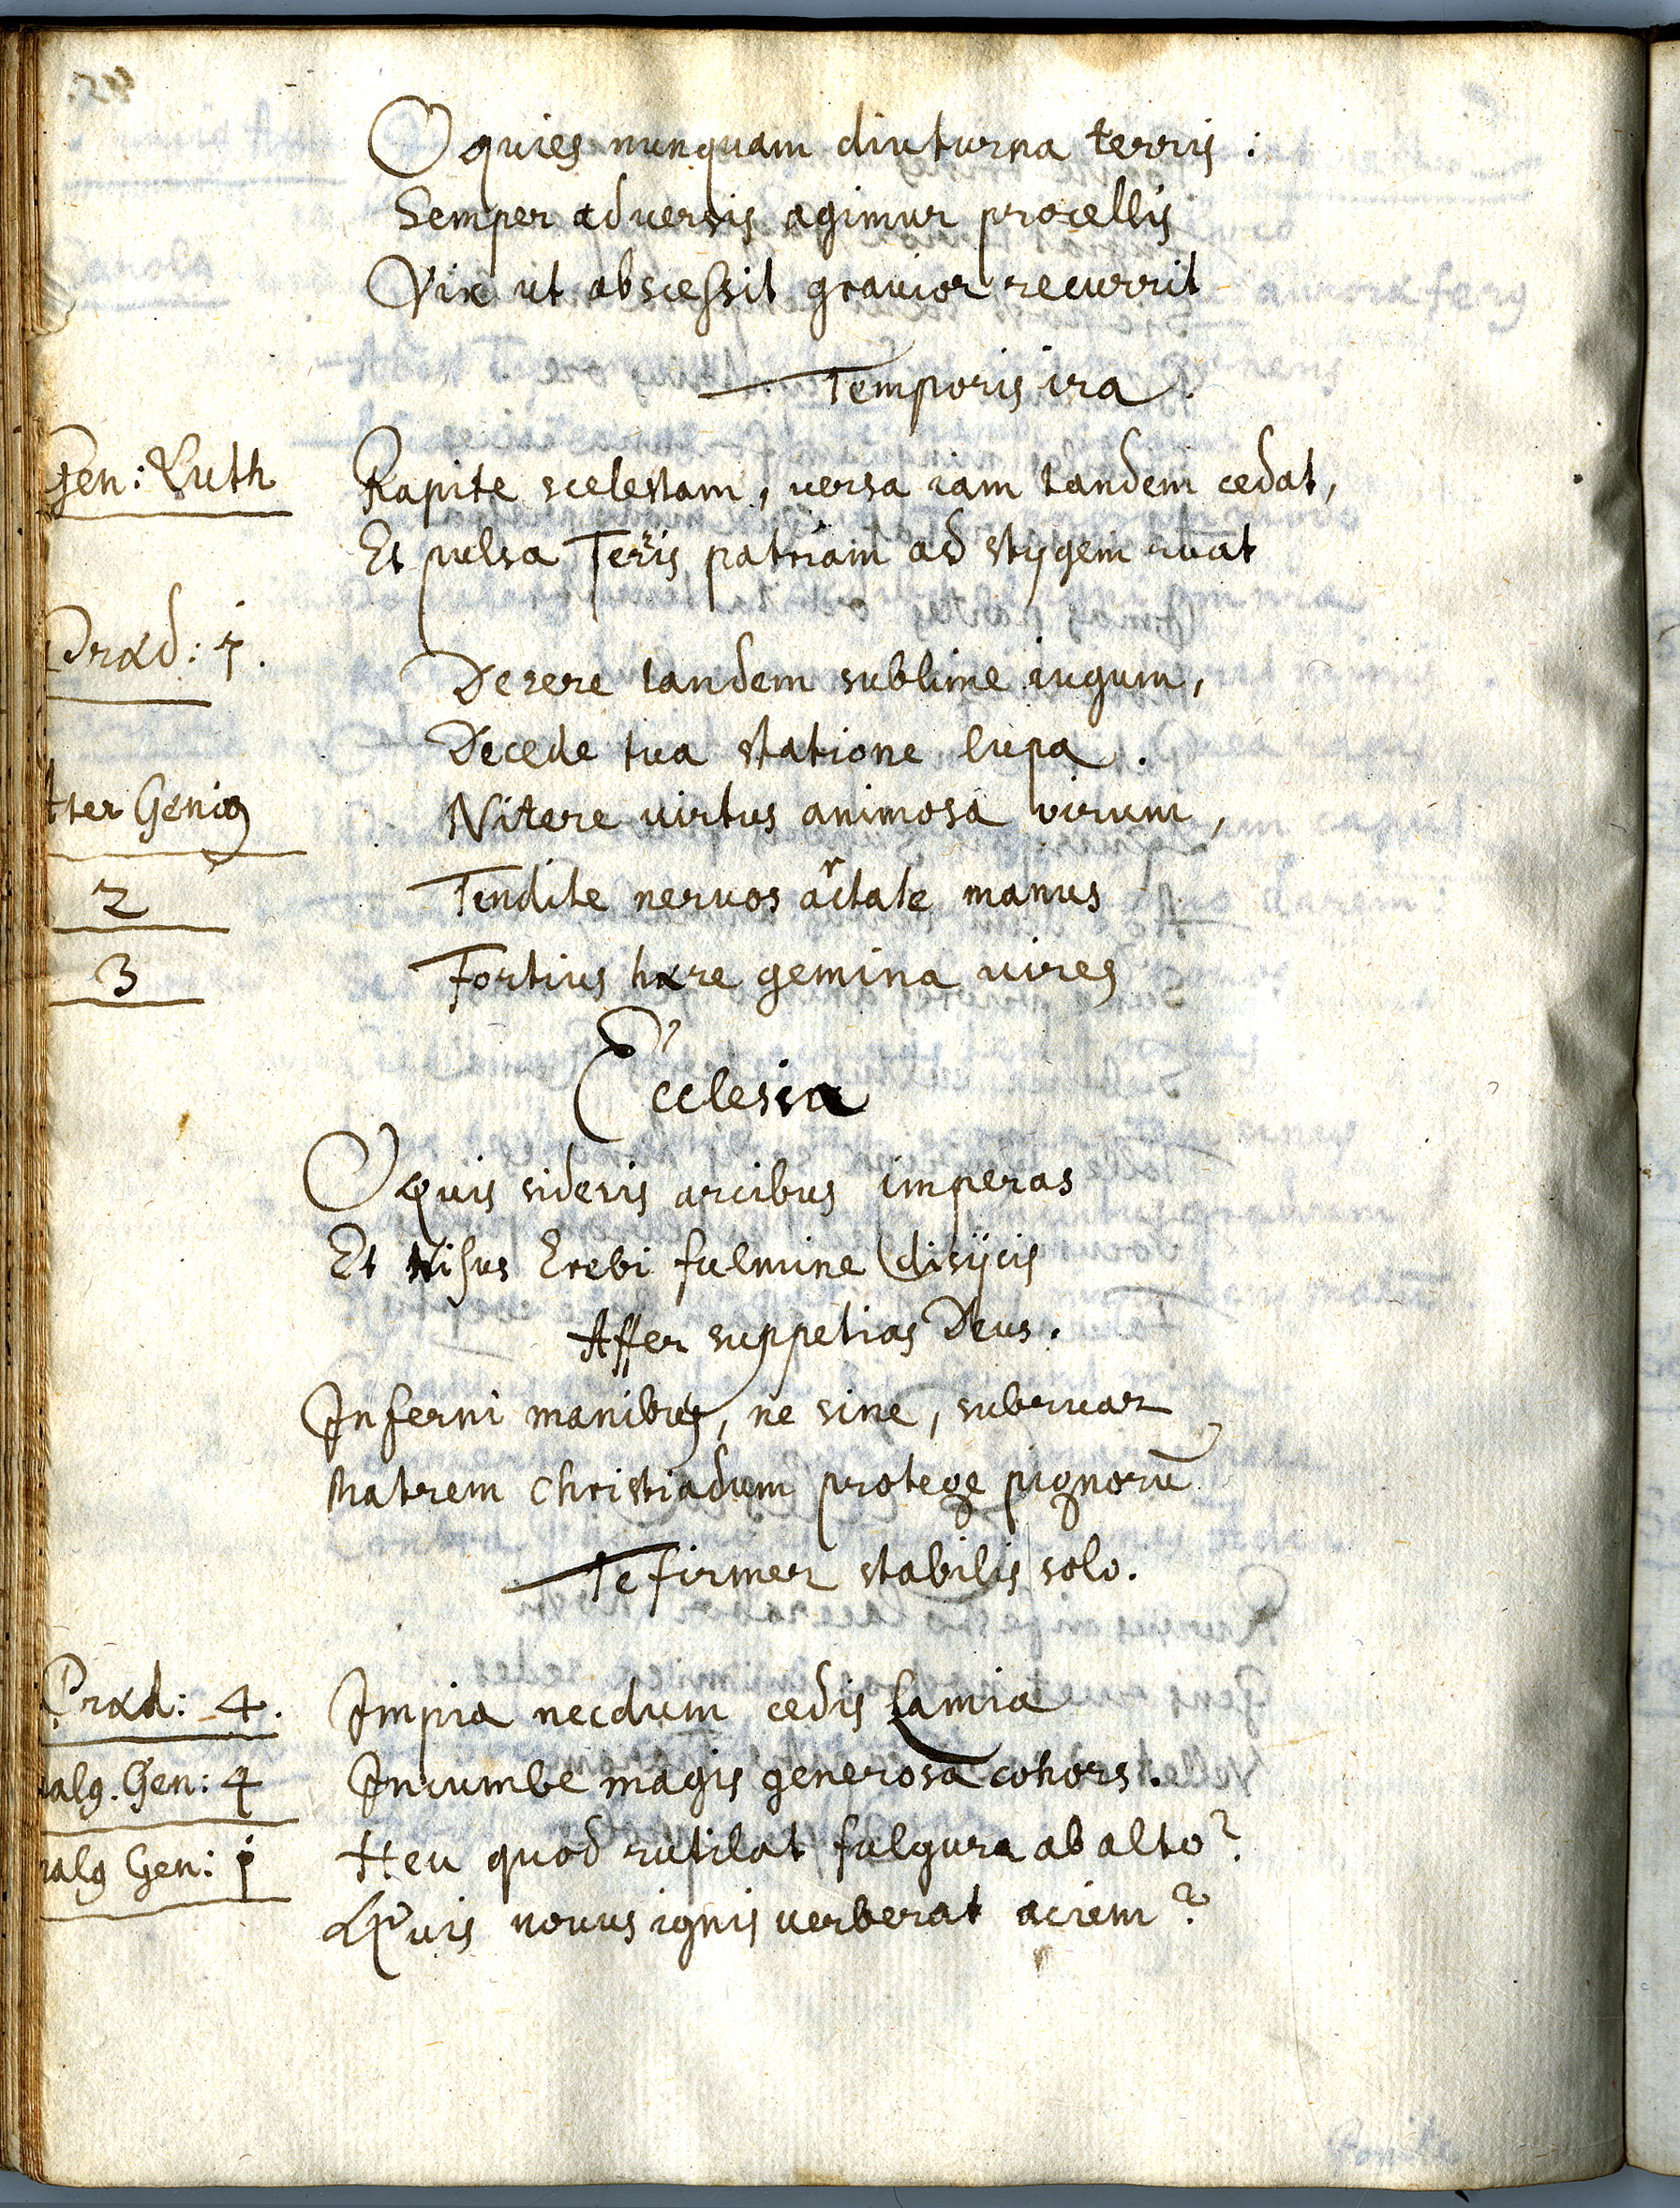 O quies nunquam diuturna terris :
Semper adversis agimur procellis
Vix ut abscessit gravior recurrit
Temporis ira.
Gen: Luth Rapite scelestam, versa iam tandem cedat,
Et pulsa Terris patriam ad stygem ruat
Præd: 1. Deserere tandem sublime iugum,
Decede tua statione lupa.
Alter Genius Nitere virtus animosa virum,
2 Tendite nervos arctate manus
3 Fortius hære gemina vires
Ecclesia
O quis sideris arcibus imperas
Et Nisus Erebi fulmine disijcis
Affer suppetias Deus.
Inferni manibus, ne sine, subruar
Matrem Christiadum protege pignorū
Te firmer stabilis solo.
Præd: 4. Impia necdum cedis Lamia
Gen: 4 Incumbe magis generosa cohors.
Gen: 1 Heu quod rutilat fulgura ab alto?
Quis novus ignis verberat aciem?